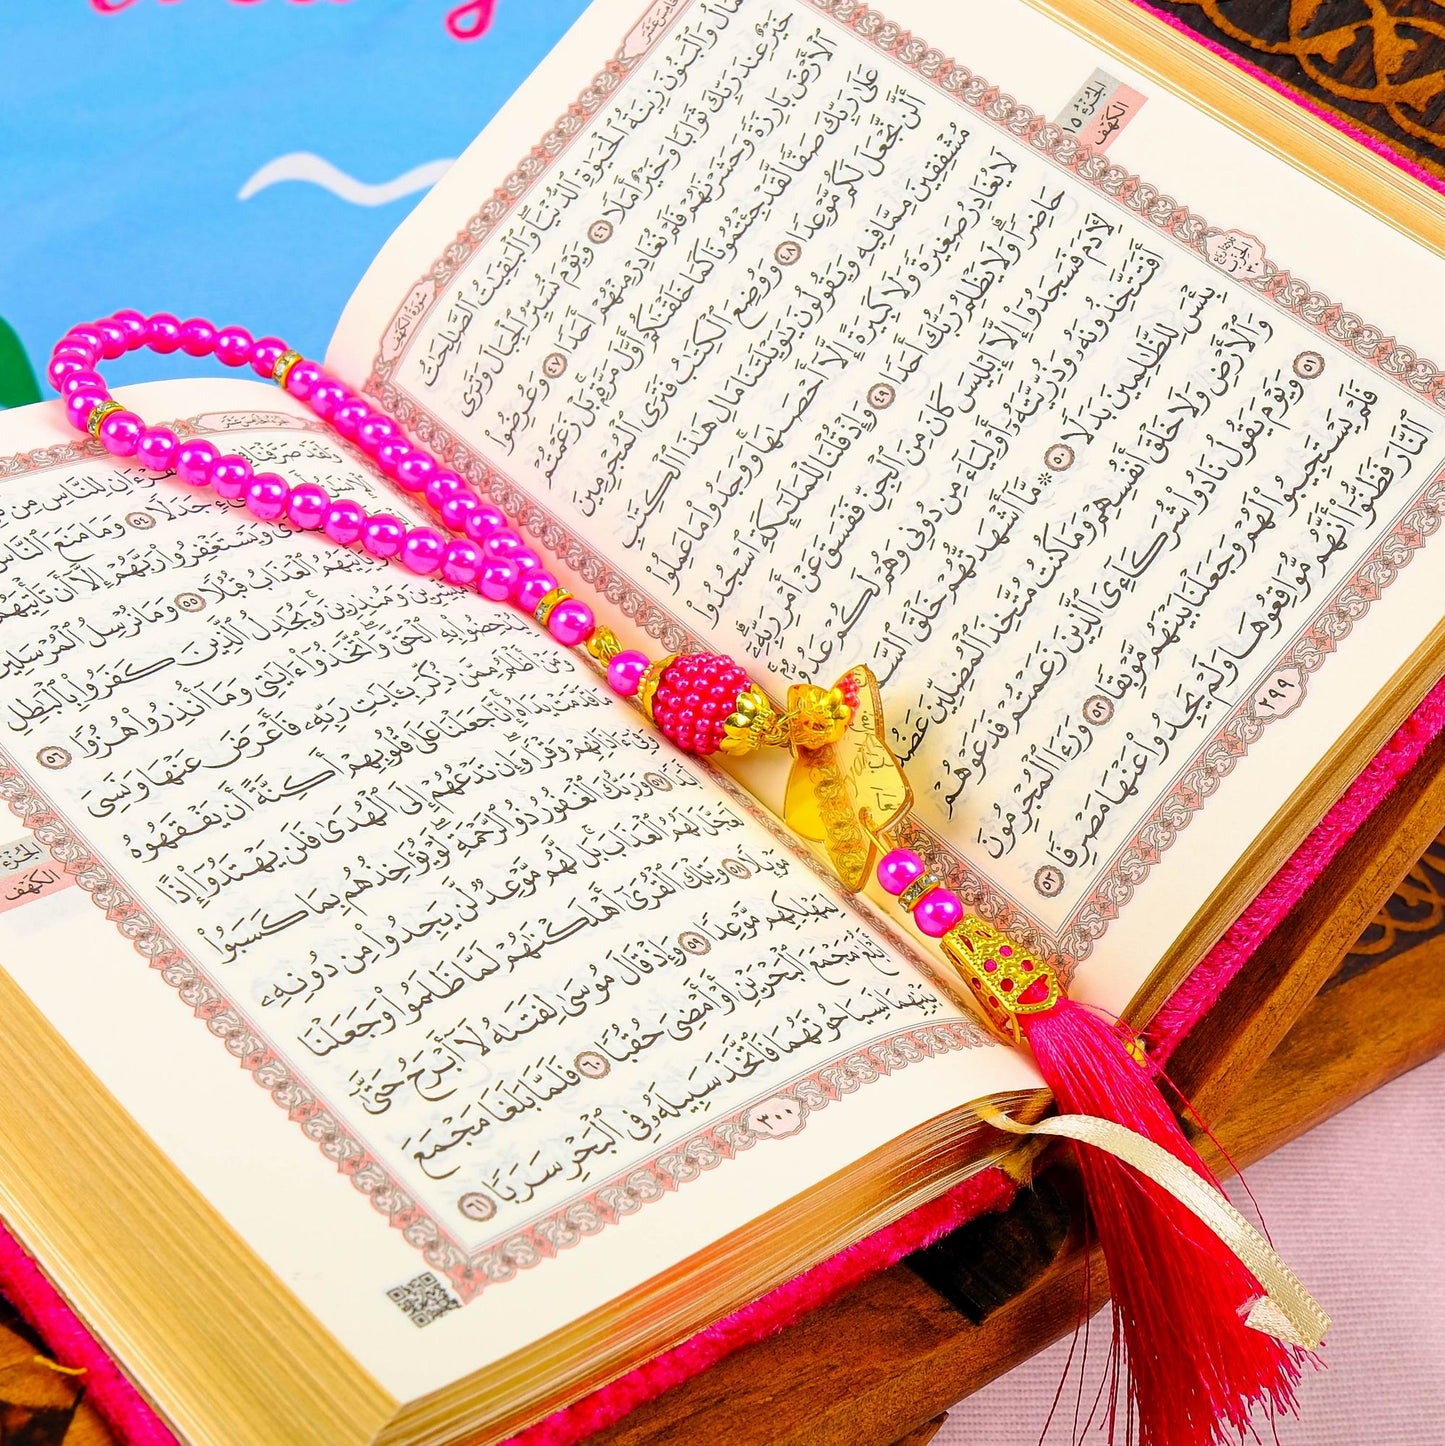 الجزء ١٥
الكهف
سورة الكهف
الحزب ٣٠
مَالُ وَٱلْبَنُونَ زِينَةُ ٱلْحَيَوٰةِ ٱلدُّنْيَا وَٱلْبَٰقِيَٰتُ ٱلصَّٰلِحَٰتُ
خَيْرٌ عِندَ رَبِّكَ ثَوَابًا وَخَيْرٌ أَمَلًا ٤٦ وَيَوْمَ نُسَيِّرُ ٱلْجِبَالَ وَتَرَى
ٱلْأَرْضَ بَارِزَةً وَحَشَرْنَٰهُمْ فَلَمْ نُغَادِرْ مِنْهُمْ أَحَدًا ٤٧ وَعُرِضُوا۟
عَلَىٰ رَبِّكَ صَفًّا لَّقَدْ جِئْتُمُونَا كَمَا خَلَقْنَٰكُمْ أَوَّلَ مَرَّةٍۭ ۚ بَلْ زَعَمْتُمْ
أَلَّن نَّجْعَلَ لَكُم مَّوْعِدًا ٤٨ وَوُضِعَ ٱلْكِتَٰبُ فَتَرَى ٱلْمُجْرِمِينَ
مُشْفِقِينَ مِمَّا فِيهِ وَيَقُولُونَ يَٰوَيْلَتَنَا مَالِ هَٰذَا ٱلْكِتَٰبِ
لَا يُغَادِرُ صَغِيرَةً وَلَا كَبِيرَةً إِلَّآ أَحْصَىٰهَا ۚ وَوَجَدُوا۟ مَا عَمِلُوا۟
حَاضِرًا ۗ وَلَا يَظْلِمُ رَبُّكَ أَحَدًا ٤٩ وَإِذْ قُلْنَا لِلْمَلَٰٓئِكَةِ ٱسْجُدُوا۟
لِـَٔادَمَ فَسَجَدُوٓا۟ إِلَّآ إِبْلِيسَ كَانَ مِنَ ٱلْجِنِّ فَفَسَقَ عَنْ أَمْرِ رَبِّهِۦٓ ۗ
أَفَتَتَّخِذُونَهُۥ وَذُرِّيَّتَهُۥٓ أَوْلِيَآءَ مِن دُونِى وَهُمْ لَكُمْ عَدُوٌّۢ ۚ
بِئْسَ لِلظَّٰلِمِينَ بَدَلًا ٥٠ ۞ مَّآ أَشْهَدتُّهُمْ خَلْقَ
وَٱلْأَرْضِ وَلَا خَلْقَ أَنفُسِهِمْ وَمَا كُنتُ مُتَّخِذَ ٱلْمُضِلِّينَ عَضُدًا
٥١ وَيَوْمَ يَقُولُ نَادُوا۟ شُرَكَآءِىَ ٱلَّذِينَ زَعَمْتُمْ فَدَعَوْهُمْ
فَلَمْ يَسْتَجِيبُوا۟ لَهُمْ وَجَعَلْنَا بَيْنَهُم مَّوْبِقًا ٥٢ وَرَءَا ٱلْمُجْرِمُونَ
ٱلنَّارَ فَظَنُّوٓا۟ أَنَّهُم مُّوَاقِعُوهَا وَلَمْ يَجِدُوا۟ عَنْهَا مَصْرِفًا ٥٣
٢٩٩
الجزء
الكهف
وَلَقَدْ صَرَّفْنَا
ٱلْقُرْءَانِ لِلنَّاسِ مِن
جَدَلًا ٥٤ وَمَا مَنَعَ ٱلنَّاسَ
وَيَسْتَغْفِرُوا۟ رَبَّهُمْ إِلَّآ أَن تَأْتِيَهُمْ
يَأْتِيَهُمُ ٱلْعَذَابُ قُبُلًا ٥٥ وَمَا نُرْسِلُ ٱلْمُرْسَلِينَ
مُبَشِّرِينَ وَمُنذِرِينَ ۚ وَيُجَٰدِلُ ٱلَّذِينَ كَفَرُوا۟ بِٱلْبَٰطِلِ
لِيُدْحِضُوا۟ بِهِ ٱلْحَقَّ ۖ وَٱتَّخَذُوٓا۟ ءَايَٰتِى وَمَآ أُنذِرُوا۟ هُزُوًا ٥٦
وَمَنْ أَظْلَمُ مِمَّن ذُكِّرَ بِـَٔايَٰتِ رَبِّهِۦ فَأَعْرَضَ عَنْهَا وَنَسِىَ
مَا قَدَّمَتْ يَدَاهُ ۚ إِنَّا جَعَلْنَا عَلَىٰ قُلُوبِهِمْ أَكِنَّةً أَن يَفْقَهُوهُ
وَفِىٓ ءَاذَانِهِمْ وَقْرًا ۖ وَإِن تَدْعُهُمْ إِلَى ٱلْهُدَىٰ فَلَن يَهْتَدُوٓا۟ إِذًا
أَبَدًا ٥٧ وَرَبُّكَ ٱلْغَفُورُ ذُو ٱلرَّحْمَةِ ۖ لَوْ يُؤَاخِذُهُم بِمَا كَسَبُوا۟
لَعَجَّلَ لَهُمُ ٱلْعَذَابَ ۚ بَل لَّهُم مَّوْعِدٌ لَّن يَجِدُوا۟ مِن دُونِهِۦ
مَوْئِلًا ٥٨ وَتِلْكَ ٱلْقُرَىٰٓ أَهْلَكْنَٰهُمْ لَمَّا ظَلَمُوا۟ وَجَعَلْنَا
لِمَهْلِكِهِم مَّوْعِدًا ٥٩ وَإِذْ قَالَ مُوسَىٰ لِفَتَىٰهُ لَآ أَبْرَحُ حَتَّىٰٓ
أَبْلُغَ مَجْمَعَ ٱلْبَحْرَيْنِ أَوْ أَمْضِىَ حُقُبًا ٦٠ فَلَمَّا بَلَغَا مَجْمَعَ
بَيْنِهِمَا نَسِيَا حُوتَهُمَا فَٱتَّخَذَ سَبِيلَهُۥ فِى ٱلْبَحْرِ سَرَبًا ٦١
٣٠٠